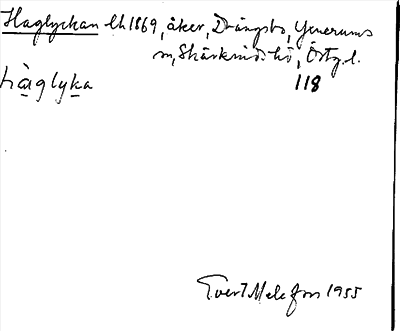 Haglyckan lh 1869, åker, Drängsbo, Yxnerums
sn, Skärkinds hd, Östg. l.
hàglyka 118
Evert Melefors 1955